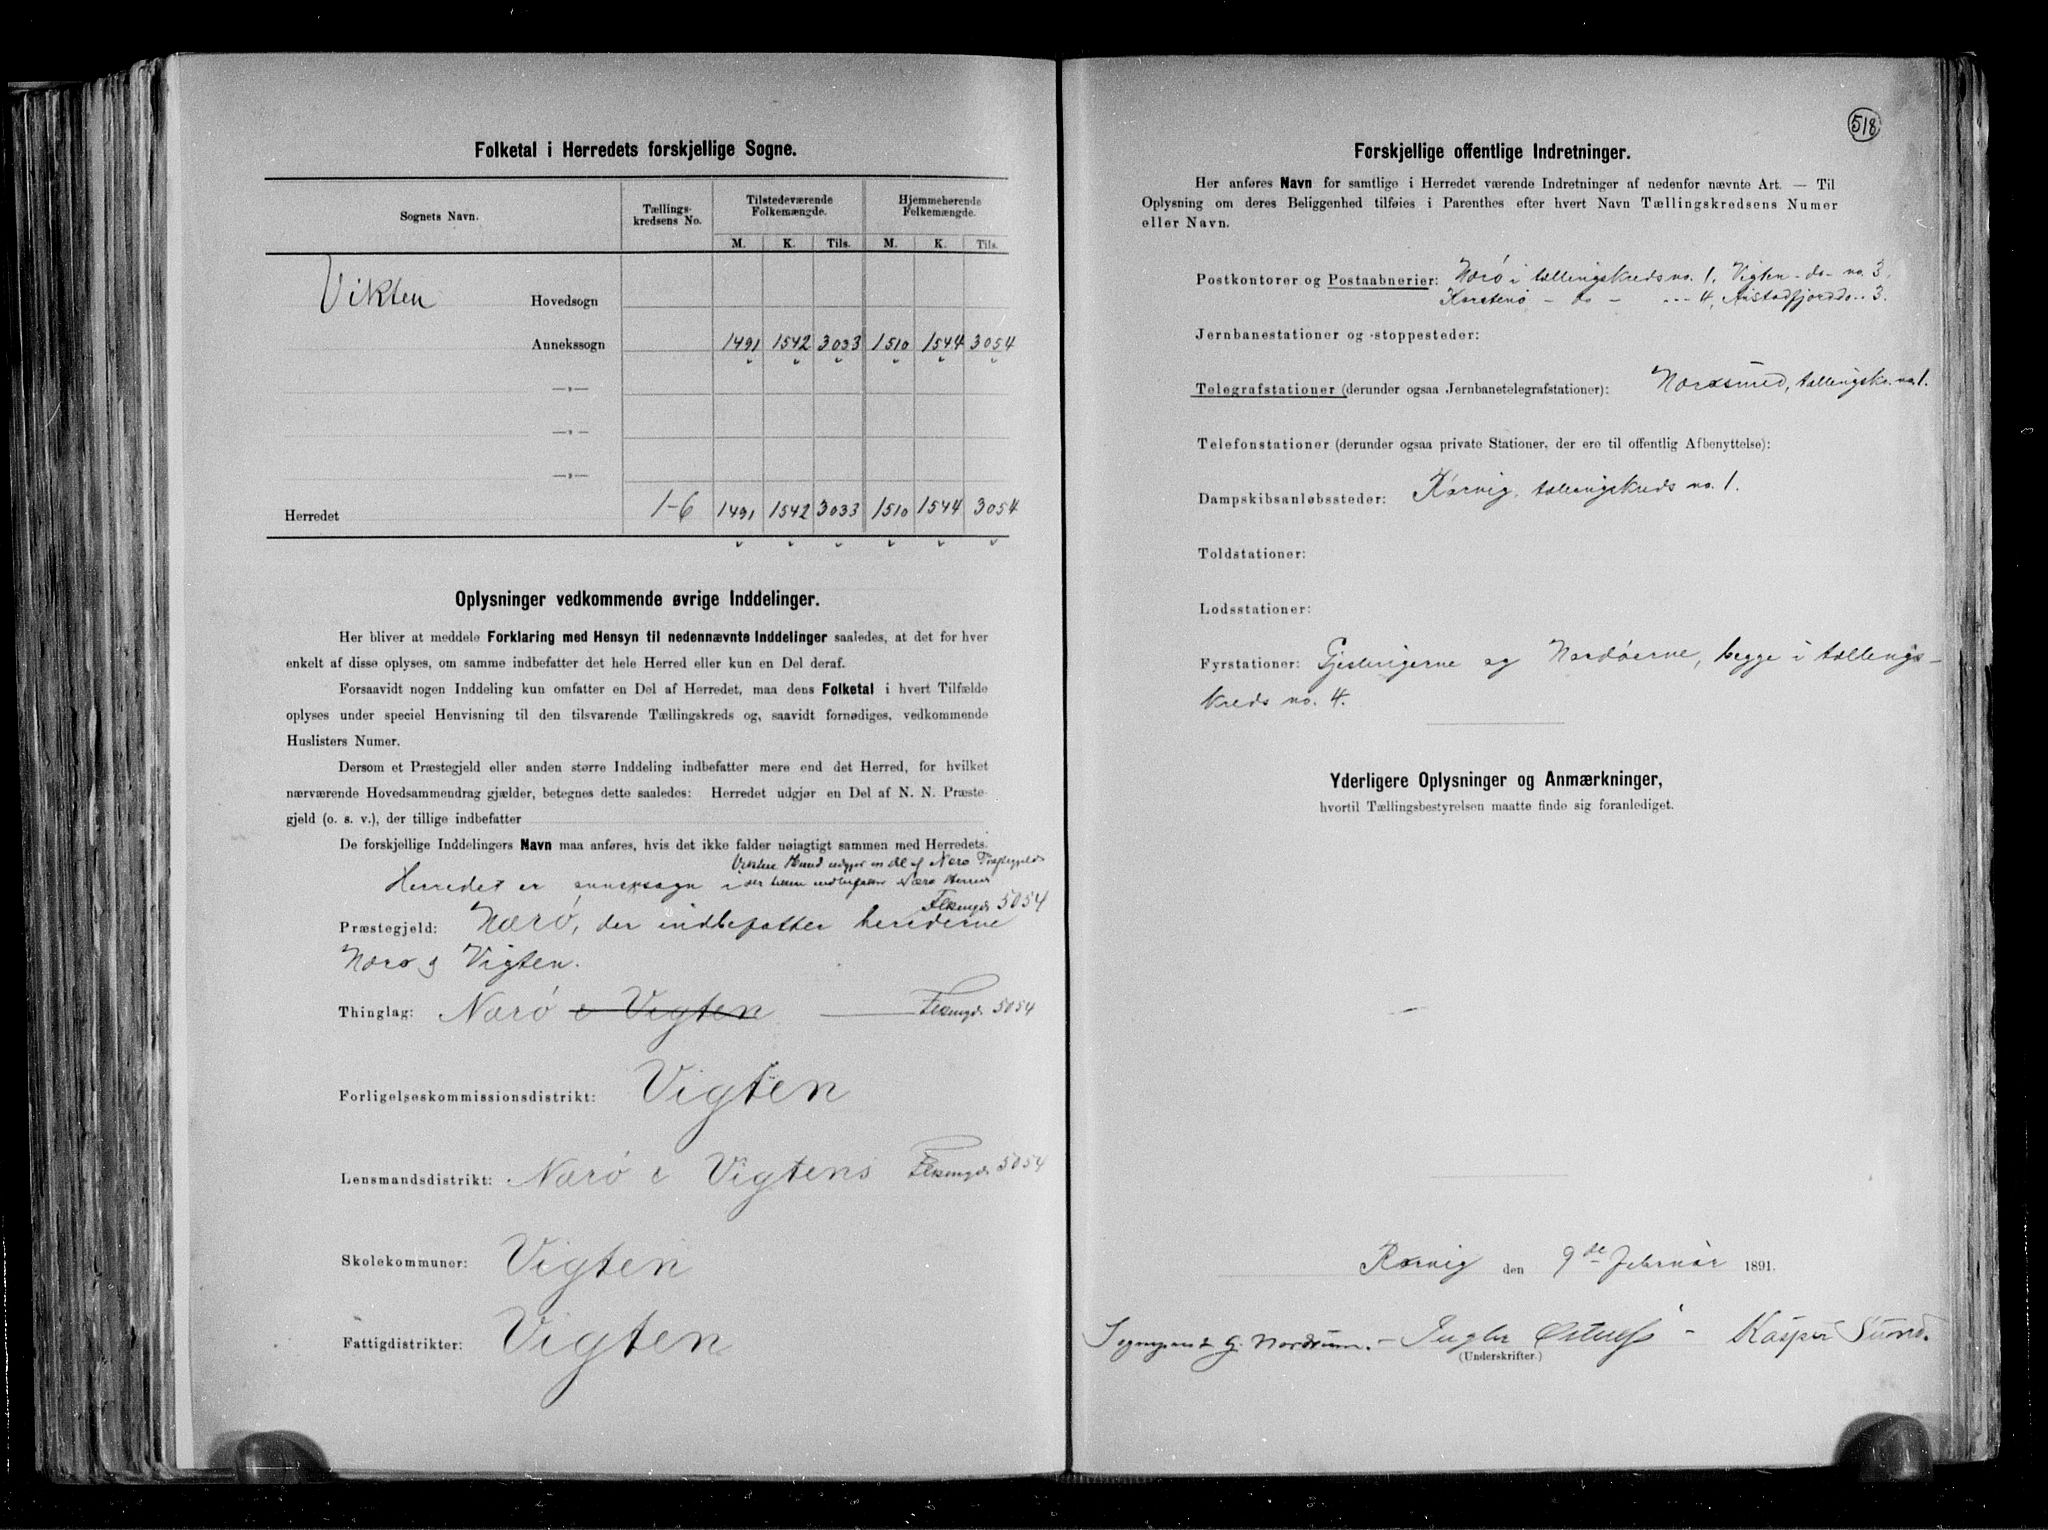 Folketal i Herredets forskjellige Sogne.
Sognets Navn.
Tællings-
kredsens No.
Tilstedeværende
Folkemængde.
Hjemmehørende
Folkemængde.
M. K. Tils. M. K. Tils.
Vikten Hovedsogn
Annekssogn 1491 1542 3033 1510 1544 3054
—»—
—»—
—»—
Herredet 1-6 1491 1542 3033 1510 1544 3054
Oplysninger vedkommende øvrige Inddelinger.
Her bliver at meddele Forklaring med Hensyn til nedennævnte Inddelinger saaledes, at det for hver
enkelt af disse oplyses, om samme indbefatter det hele Herred eller kun en Del deraf.
Forsaavidt nogen Inddeling kun omfatter en Del af Herredet, maa dens Folketal i hvert Tilfælde
oplyses under speciel Henvisning til den tilsvarende Tællingskreds og, saavidt fornødiges, vedkommende
Huslisters Numer.
Dersom et Præstegjeld eller anden større Inddeling indbefatter mere end det Herred, for hvilket
nærværende Hovedsammendrag gjælder, betegnes dette saaledes: Herredet udgjør en Del af N. N. Præste-
gjeld (o. s. v.), der tillige indbefatter
De forskjellige Inddelingers Navn maa anføres, hvis det ikke falder nøiagtigt sammen med Herredets.
Vikten Herred udgjør en del af Nærø Præstegjeld
der tillige indbefatter Nærø Herred
Herredet er annexsogn i
5054
Præstegjeld: Nærø, der indbefatter herederne
Nærø og Vigten.
Thinglag: Nærø & Vigten 5054
Forligelseskommissionsdistrikt: Vigten
Lensmandsdistrikt: Nærø & Vigtens 5054
Skolekommuner: Vigten
Fattigdistrikter: Vigten
518
Forskjellige offentlige Indretninger.
Her anføres Navn for samtlige i Herredet værende Indretninger af nedenfor nævnte Art. — Til
Oplysning om deres Beliggenhed tilføies i Parenthes efter hvert Navn Tællingskredsens Numer
eller Navn.
Postkontorer og Postaabnerier: Nærø i tællingskreds no. 1, Vigten - do - no. 3,
- do - - - - 4, - 3.
Jernbanestationer og -stoppesteder:
Telegrafstationer (derunder ogsaa Jernbanetelegrafstationer): Nærøsund, tællingskr. no. 1.
Telefonstationer (derunder ogsaa private Stationer, der ere til offentlig Afbenyttelse):
Dampskibsanløbssteder: Rørvig, tællingskreds no. 1.
Toldstationer:
Lodsstationer:
Fyrstationer: Gjeslingerne og Nordøerne, begge i tællings-
kreds no. 4.
Yderligere Oplysninger og Anmærkninger,
hvortil Tællingsbestyrelsen maatte finde sig foranlediget.
Rørvig den 9de Februar 1891.
G. Nordrum. - Kasper Sund.
(Underskrifter.)